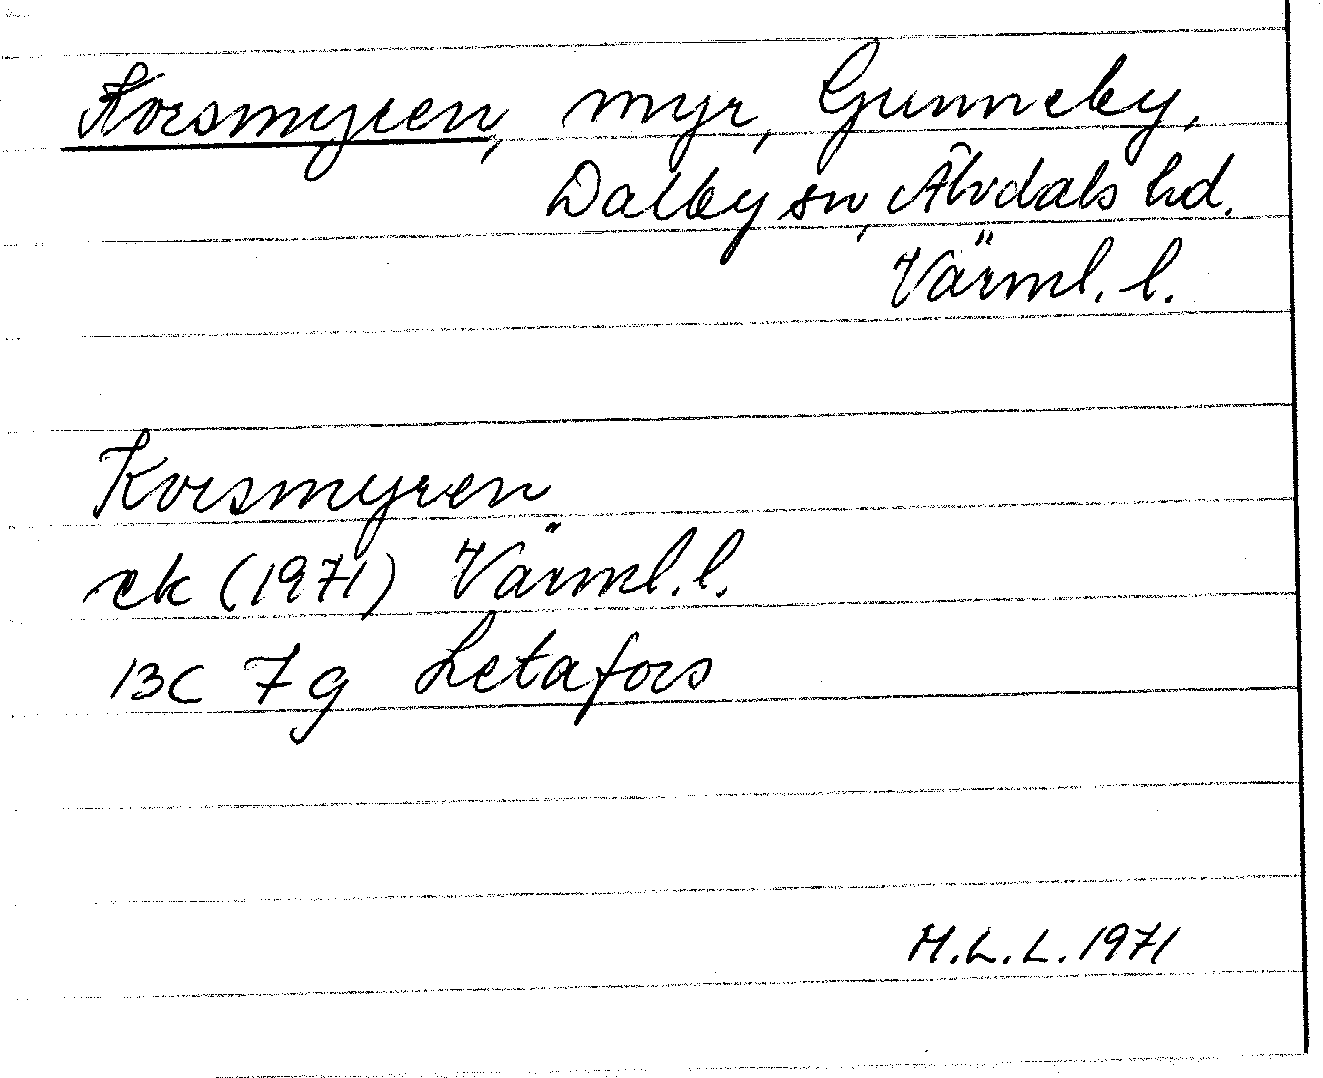 Korsmyren, myr, Gunneby,
Dalby sn, Älvdals hd.
Värml. l.
Korsmyren
ek (1971) Värml. l.
13C 7g Letafors
H.L.L. 1971